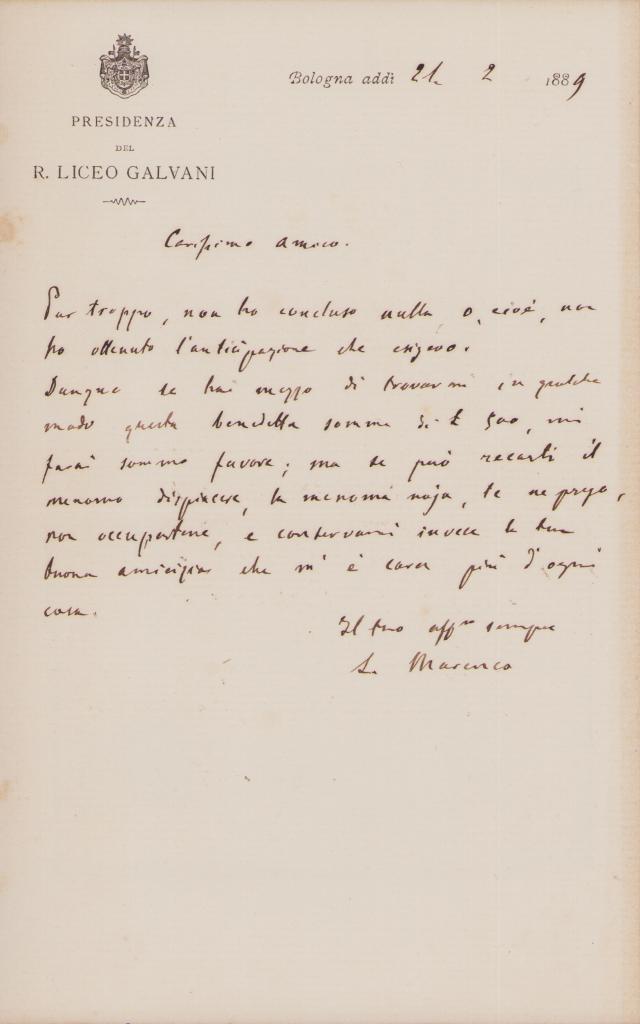 Bologna addì 21. 2 1889
PRESIDENZA
DEL
R. LICEO GALVANI
Carissimo amico.
Pur troppo, non ho concluso nulla, o, cioè, non
ho ottenuto l'anticipazione che esigevo.
Dunque se hai mezzo di trovarmi in qualche
modo questa benedetta somma di £ 500, mi
farai sommo favore; ma se può recarti il
menomo dispiacere, la menoma noja, te ne prego,
non occupartene, e conservami invece la tua
buona amicizia che m'è cara più d'ogni
cosa.
Il tuo aff.mo sempre
L. Marenco